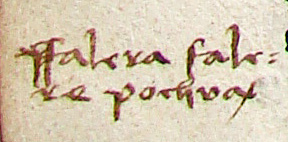 ffalera fale=
re pochvax